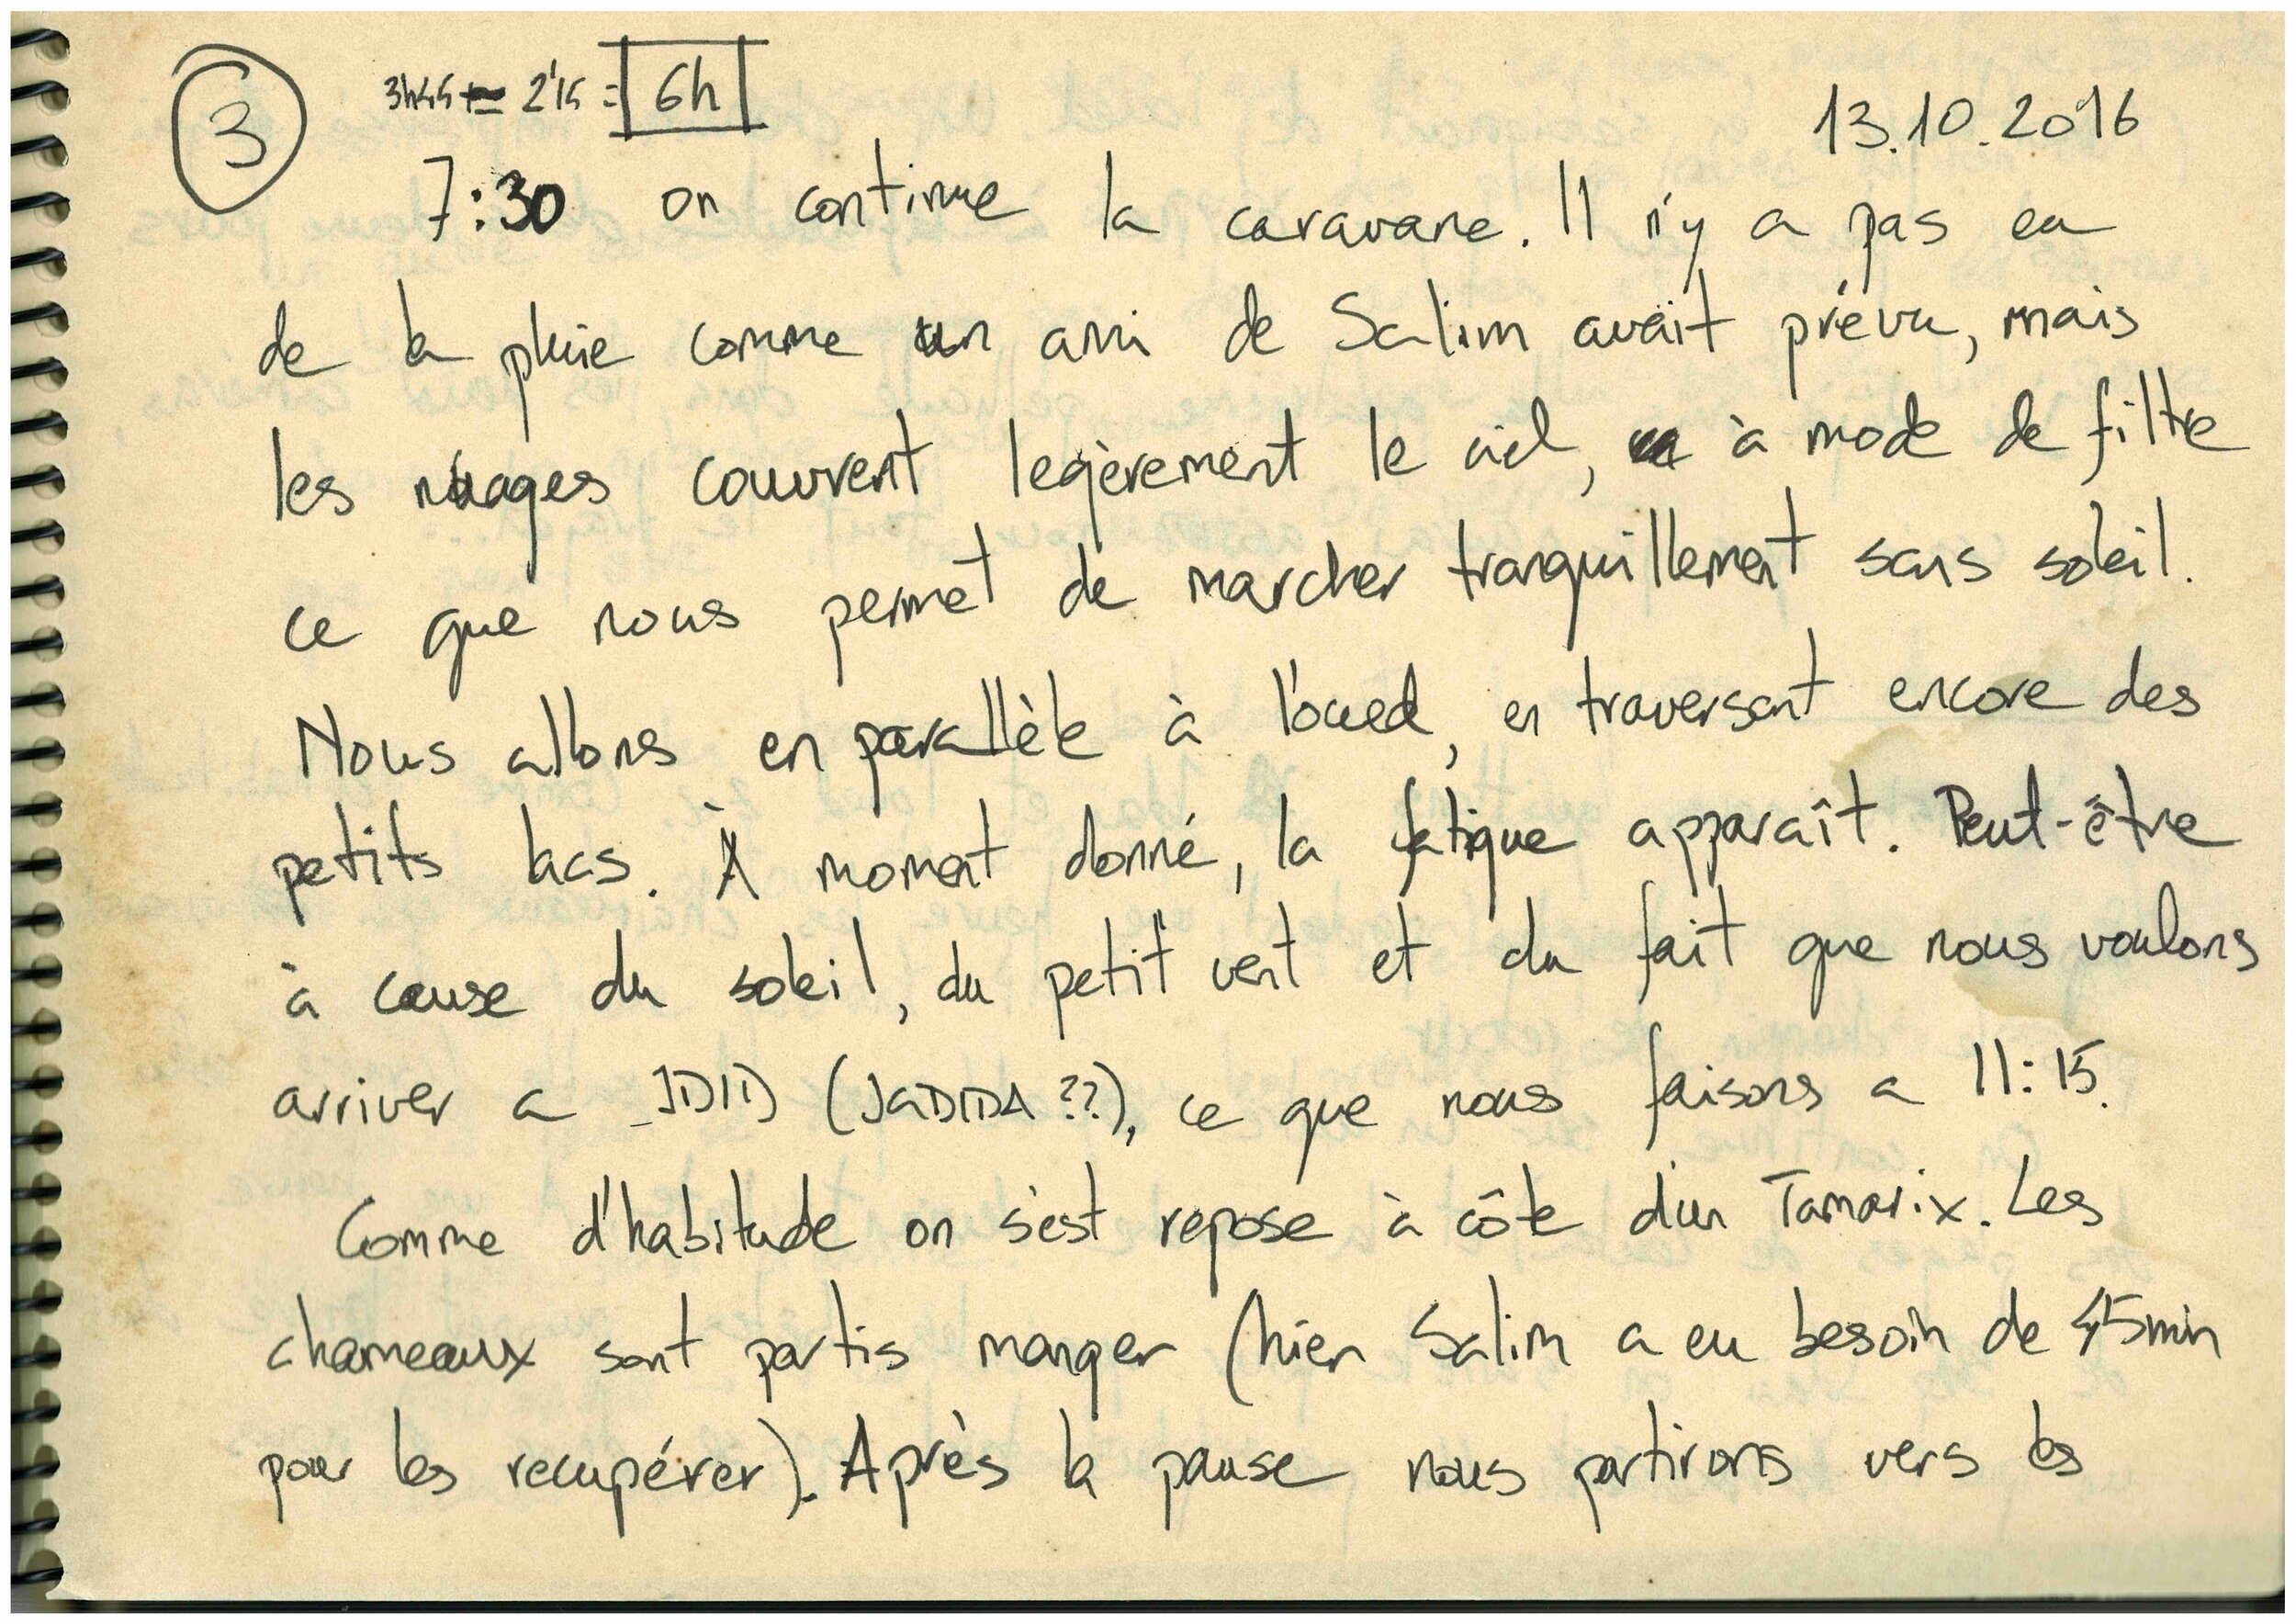 3
3h45 + 2'15 = 6h
13.10.2016
7:30 on continue la caravane. Il n'y a pas eu
de la pluie comme un ami de Salim avait prévu, mais
les nuages couvrent legèrement le ciel, à mode de filtre
ce que nous permet de marcher tranquillement sans soleil.
Nous allons en parallèle à l'oued, en traversant encore des
petits lacs. À moment donné, la fatigue apparaît. Peut-être
à cause du soleil, du petit vent et du fait que nous voulons
arriver a JDID (JADIDA ??), ce que nous faisons a 11:15.
Comme d'habitude on s'est repose à côte d'un Tamarix. Les
chameaux sont partis manger (hier Salim a eu besoin de 45min
pour les recupérer). Après la pause nous partirons vers les